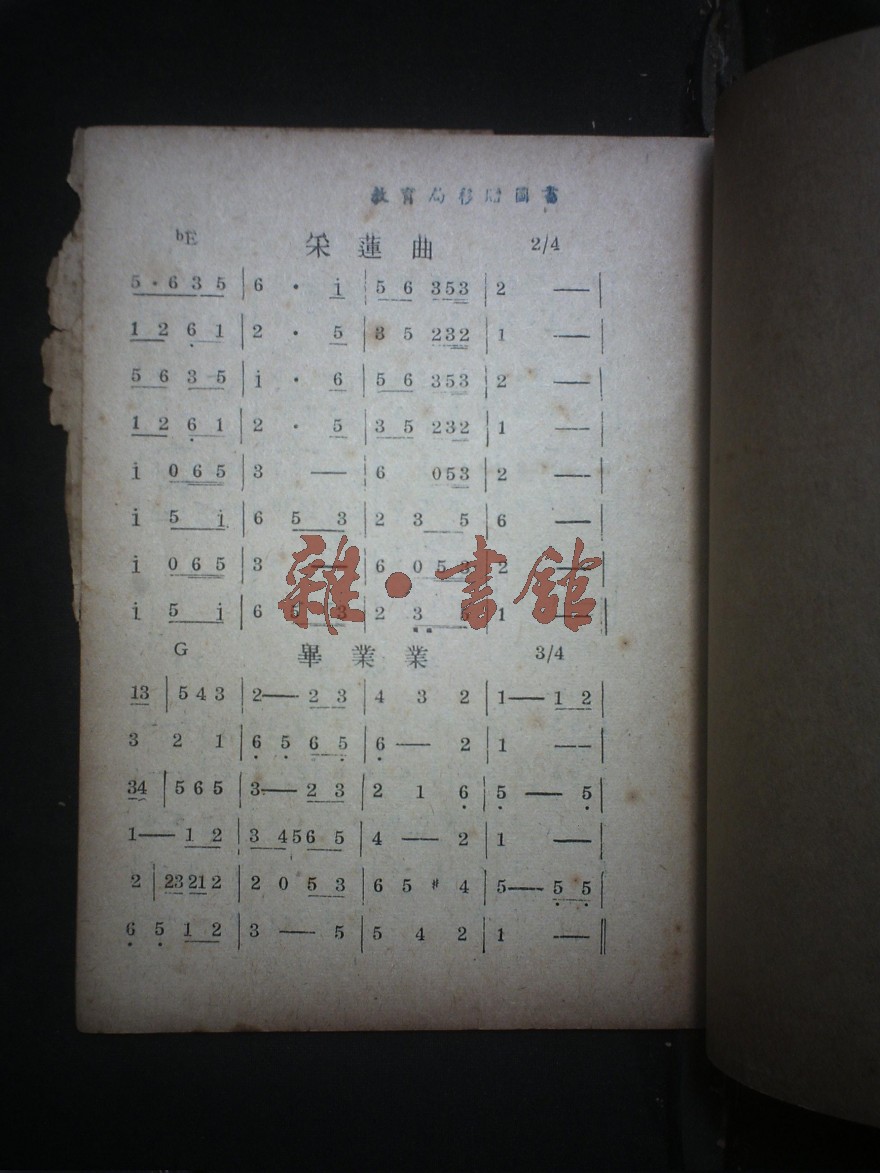 教育局移贈圖書
bE 采蓮曲 2/4
5·635 | 6 · i | 56 353 | 2 — |
12 61 | 2 · 5 | 35 232 | 1 — |
56 35 | i · 6 | 56 353 | 2 — |
12 61 | 2 · 5 | 35 232 | 1 — |
i 065 | 3 — | 6 053 | 2 — |
i 5 i | 6 5 3 | 2 3 5 | 6 — |
i 065 | 3 — | 6 053 | 2 — |
i 5 i | 6 5 3 | 2 3 5 | 1 — ‖
雜·書館
G 畢業業 3/4
13 | 543 | 2— 23 | 4 3 2 | 1— 12 |
3 2 1 | 65 65 | 6 — 2 | 1 —— |
34 | 565 | 3— 23 | 2 1 6 | 5 — 5 |
1— 12 | 3 456 5 | 4 — 2 | 1 — |
2 | 23 21 2 | 2 0 53 | 6 5 #4 | 5— 55 |
6 5 12 | 3 — 5 | 5 4 2 | 1 — ‖